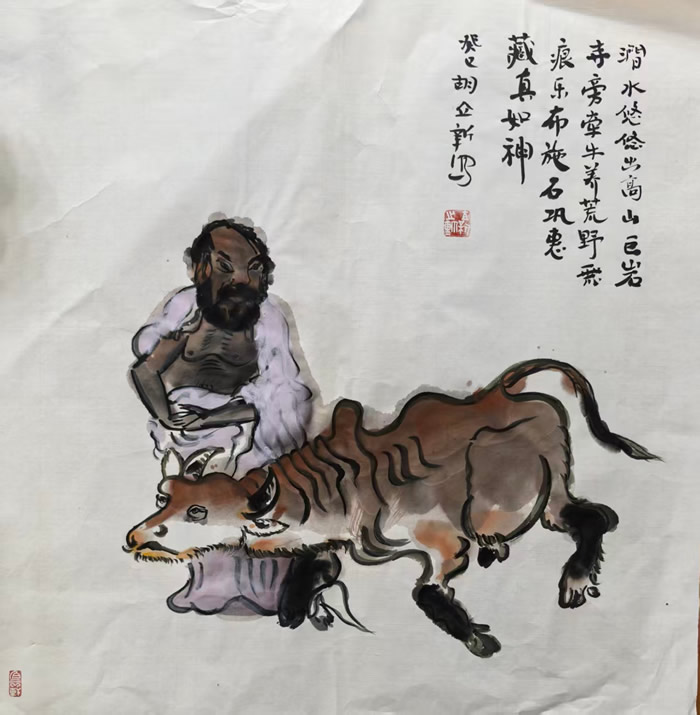 涧水悠悠出高山巨岩
寺旁牵牛养荒野
痕乐布施石巩惠
藏真如神
癸巳胡立新写